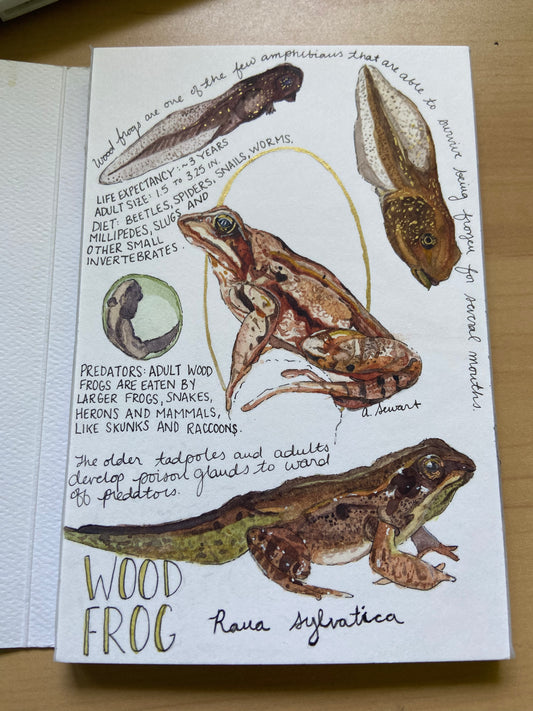 Wood frogs are one of the few amphibians that are able to survive being frozen for several months.
LIFE EXPECTANCY: ~3 YEARS
ADULT SIZE: 1.5 TO 3.25 IN.
DIET: BEETLES, SPIDERS, SNAILS, WORMS,
MILLIPEDES, SLUGS AND
OTHER SMALL
INVERTEBRATES.
PREDATORS: ADULT WOOD
FROGS ARE EATEN BY
LARGER FROGS, SNAKES,
HERONS AND MAMMALS,
LIKE SKUNKS AND RACCOONS.
a. Sewart
The older tadpoles and adults
develop poison glands to ward
off predators.
WOOD
FROG
Rana sylvatica